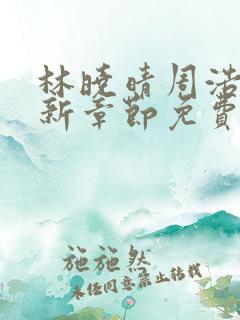 林晓晴周浩
新章節免費
施施然
未经同意禁止转载